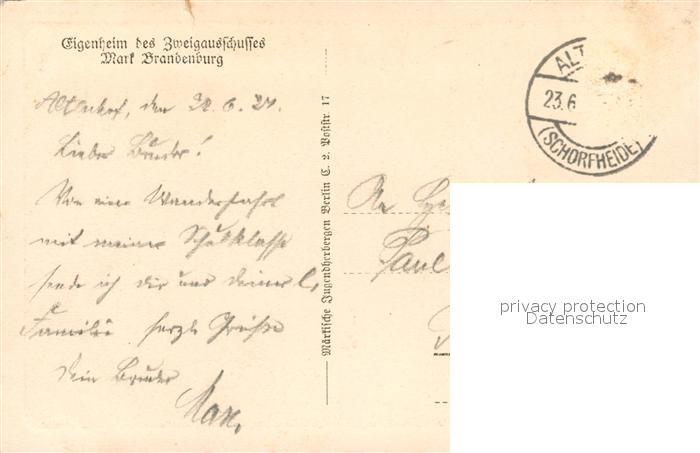 Eigenheim des Zweigausschusses
Mark Brandenburg
Altenhof, den 22. 6. 27.
Lieber Bruder!
Von einer Wanderfahrt
mit meiner Schulklasse
sende ich dir und deiner l.
Familie herzl. Grüße
dein Bruder
Max.
Märkische Jugendherbergen Berlin C. 2. Poststr. 17
ALT
23.6
(SCHORFHEIDE)
An
Paul
privacy protection
Datenschutz